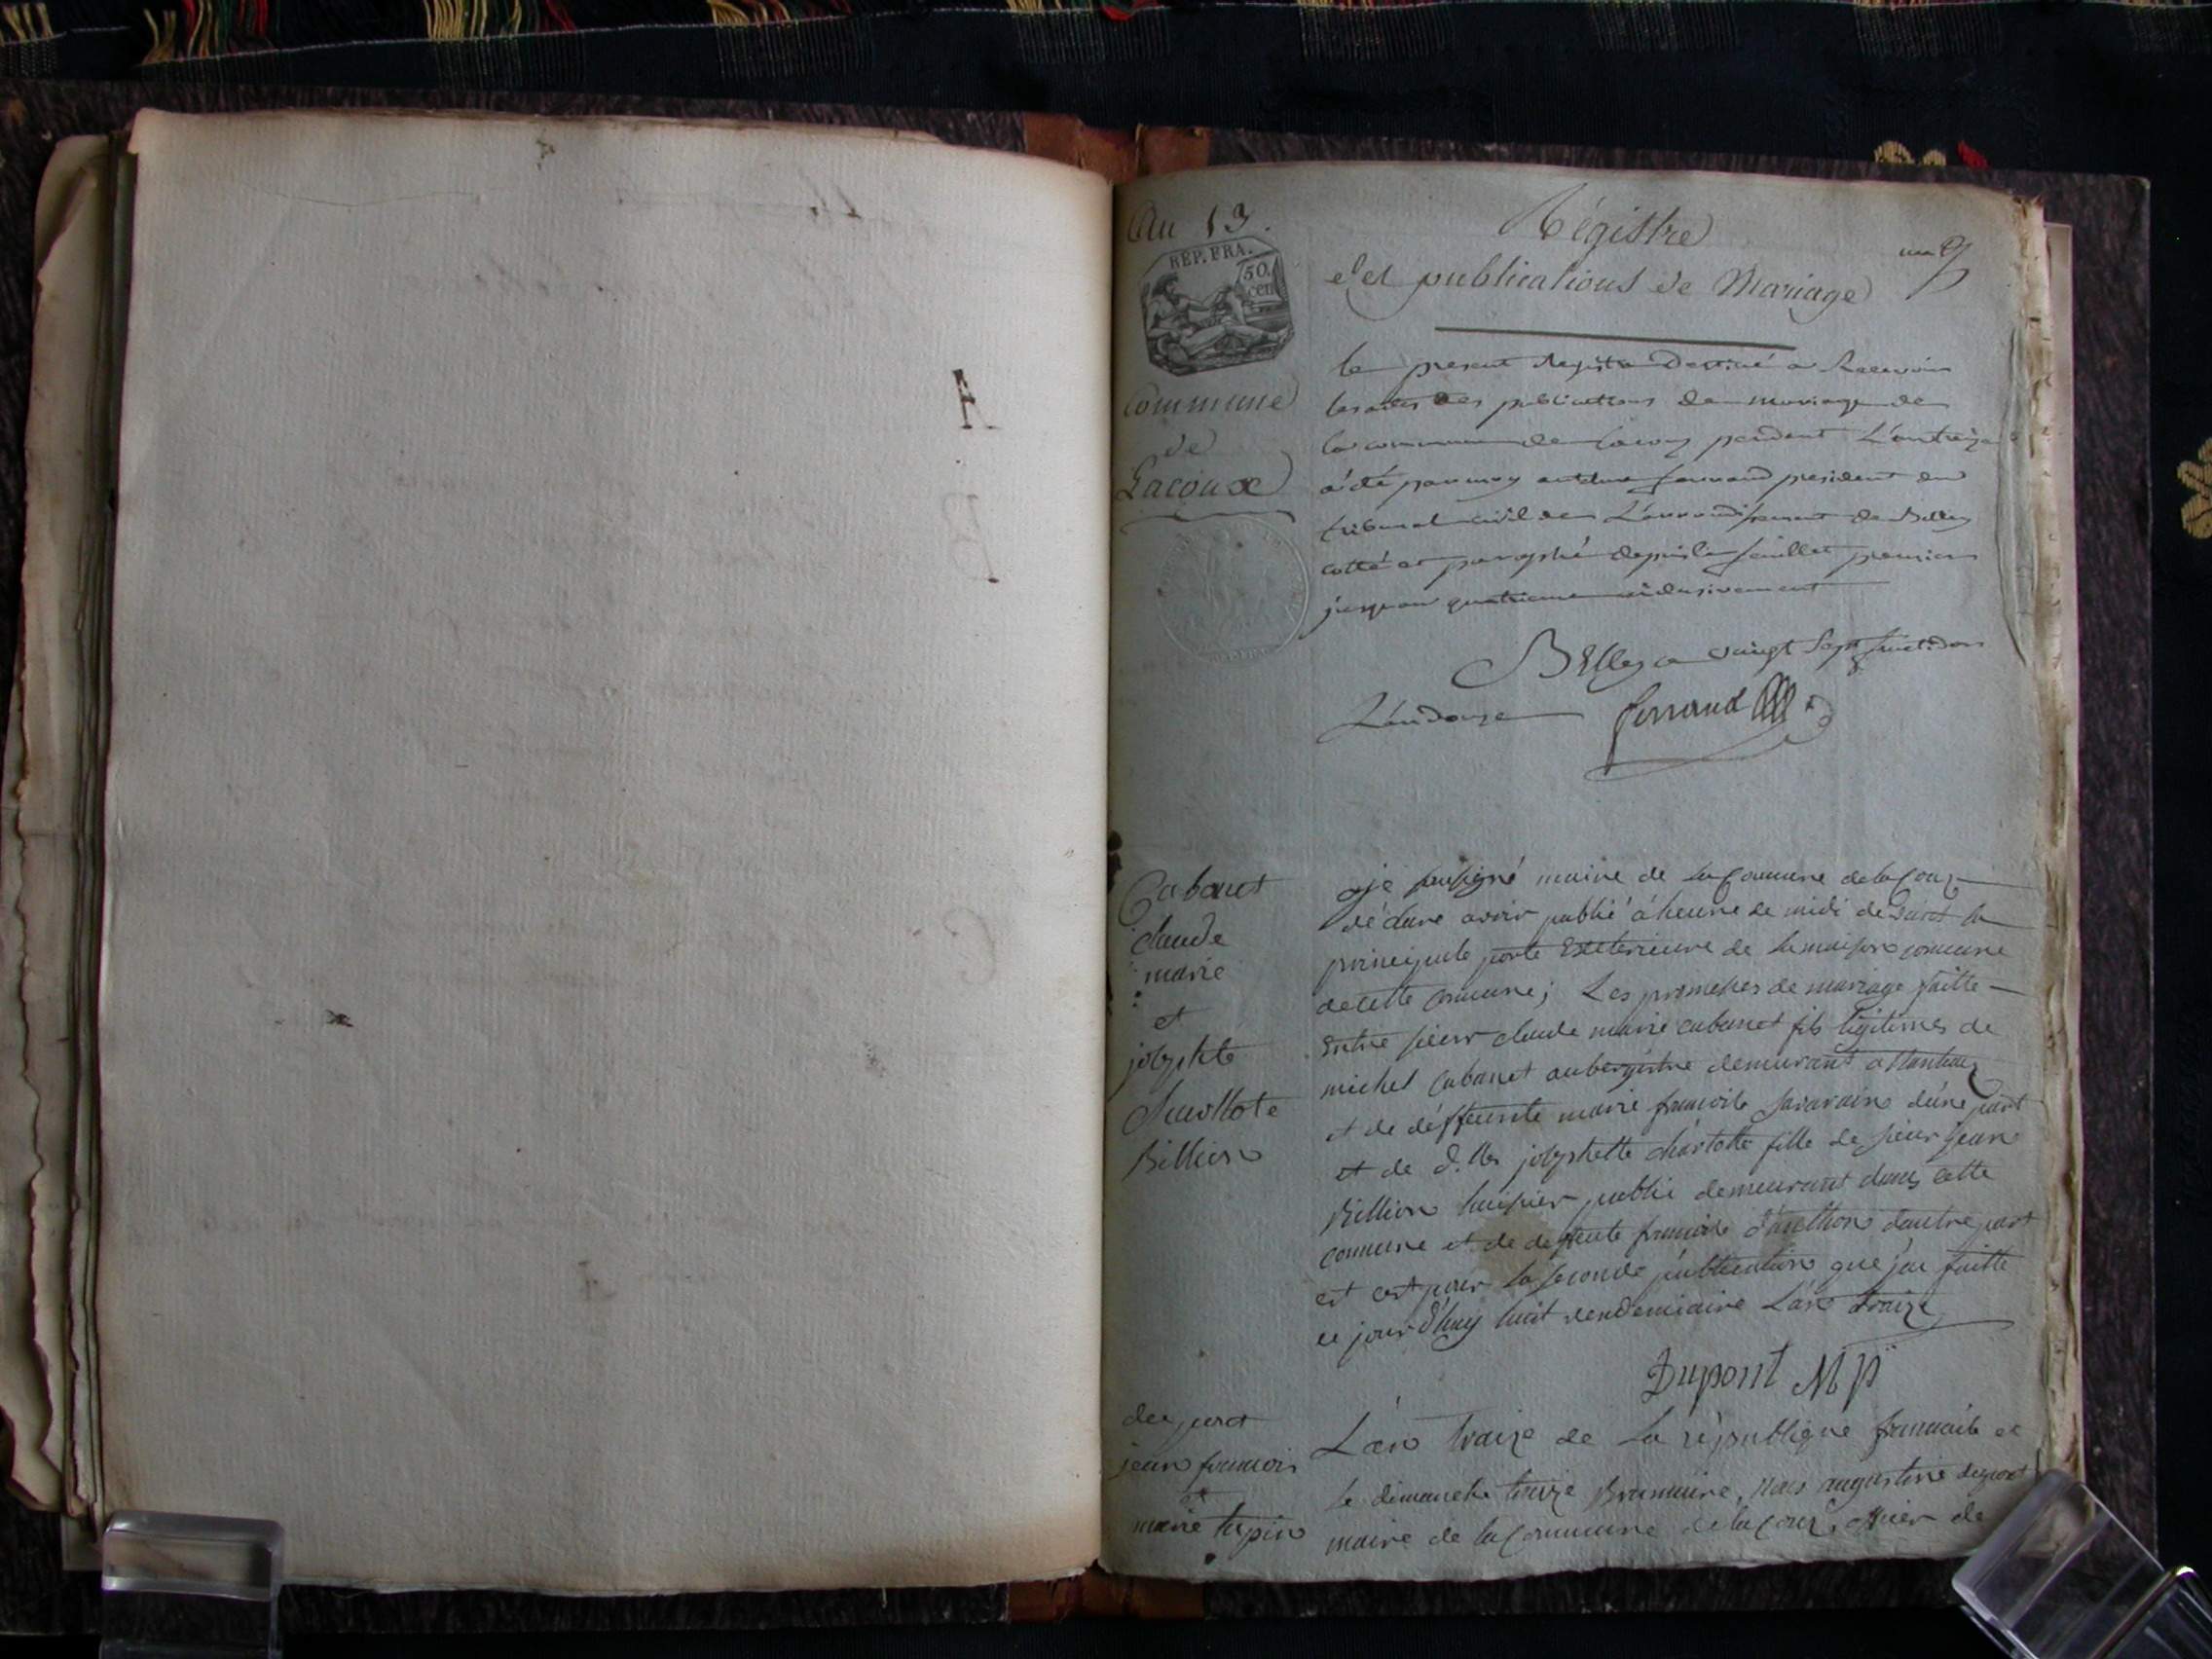 A
B
C
An 13.
REP. FRA.
50. cen
Commune
de
Lacoux
Régistre
des publications de Mariage
le present Registre Destiné a Recevoir
les actes des publications de mariage de
la commune de Lacoux pendant L'an treize
a été par moy anthelme ferrand president du
tribunal civil de L'arrondissement de Belley
cotté et paraphé depuis le feuillet premier
jusqu'au quatrieme inclusivement
Belley ce vaingt Sept fructidor
L'an douze ferrand
Cabanet
claude
marie
et
josephte
charllote
Billion
je sousigné maire de la Commune de la Couz
déclare avoir publié a heure de midi devant la
principale porte Exsterieure de la maison comune
de cette comune; Les promesses de mariage faitte
Entre sieur claude marie cabanet fils légitimes de
michel cabanet aubergistre demurant a Nantuaz
et de déffeunte marie francoise savarain d'une part
et de d.lle josephette charlotte fille de sieur jean
Billion huissier public demeurant dans cette
comune et de deffeunte francoise d'autre part
et cest pour la seconde publication que j'ai faitte
ce jourd'huy huit vendemiaire L'an traize
Dupont M p
dupont
jean francois
et
marie tupin
L'an traize de la république francaise et
le dimanche traize Brumaire, nous augustine dupont
maire de la Commune de la couz, officier de